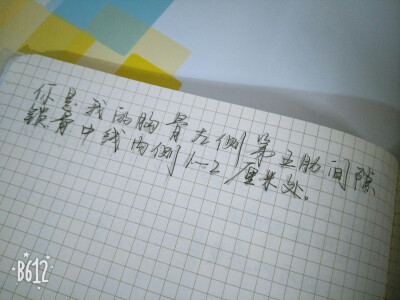 你是我的胸骨左侧第五肋间隙
锁骨中线内侧1-2厘米处。
B612